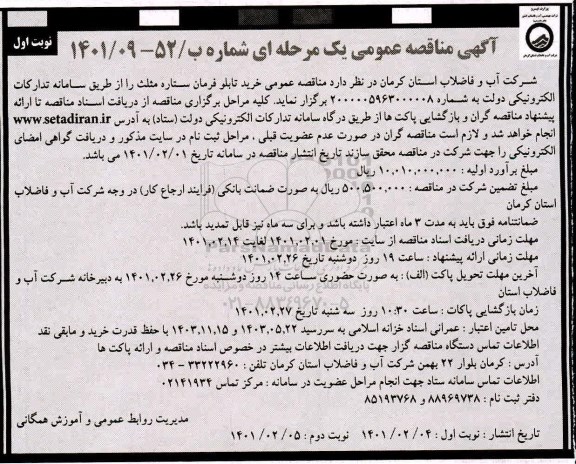 وزارت نیرو
نوبت اول
آگهی مناقصه عمومی یک مرحله ای شماره ب/۵۲- ۱۴۰۱/۰۹
شرکت آب و فاضلاب استان کرمان در نظر دارد مناقصه عمومی خرید تابلو فرمان ستاره مثلث را از طریق سامانه تدارکات
الکترونیکی دولت به شماره ۲۰۰۰۰۰۵۹۶۳۰۰۰۰۰۸ برگزار نماید. کلیه مراحل برگزاری مناقصه از دریافت اسناد مناقصه تا ارائه
پیشنهاد مناقصه گران و بازگشایی پاکت ها از طریق درگاه سامانه تدارکات الکترونیکی دولت (ستاد) به آدرس www.setadiran.ir
انجام خواهد شد و لازم است مناقصه گران در صورت عدم عضویت قبلی ، مراحل ثبت نام در سایت مذکور و دریافت گواهی امضای
الکترونیکی را جهت شرکت در مناقصه محقق سازند تاریخ انتشار مناقصه در سامانه تاریخ ۱۴۰۱/۰۲/۰۱ می باشد.
مبلغ برآورد اولیه : ۱۰،۰۱۰،۰۰۰،۰۰۰ ریال
مبلغ تضمین شرکت در مناقصه : ۵۰۰،۵۰۰،۰۰۰ ریال به صورت ضمانت بانکی (فرایند ارجاع کار) در وجه شرکت آب و فاضلاب
استان کرمان
ضمانتنامه فوق باید به مدت ۳ ماه اعتبار داشته باشد و برای سه ماه نیز قابل تمدید باشد.
مهلت زمانی دریافت اسناد مناقصه از سایت : مورخ ۱۴۰۱،۰۲،۰۱ لغایت ۱۴۰۱،۰۲،۱۴
مهلت زمانی ارائه پیشنهاد : ساعت ۱۹ روز دوشنبه تاریخ ۱۴۰۱،۰۲،۲۶
آخرین مهلت تحویل پاکت (الف) : به صورت حضوری ساعت ۱۴ روز دوشنبه مورخ ۱۴۰۱,۰۲,۲۶ به دبیرخانه شرکت آب و
فاضلاب استان
زمان بازگشایی پاکات : ساعت ۱۰:۳۰ روز سه شنبه تاریخ ۱۴۰۱،۰۲،۲۷
محل تامین اعتبار : عمرانی اسناد خزانه اسلامی به سررسید ۱۴۰۳،۰۵،۲۲ و ۱۴۰۳،۱۱،۱۵ با حفظ قدرت خرید و مابقی نقد
اطلاعات تماس دستگاه مناقصه گزار جهت دریافت اطلاعات بیشتر در خصوص اسناد مناقصه و ارائه پاکت ها
آدرس : کرمان بلوار ۲۲ بهمن شرکت آب و فاضلاب استان کرمان تلفن : ۳۳۲۲۲۹۶۰ - ۰۳۴
اطلاعات تماس سامانه ستاد جهت انجام مراحل عضویت در سامانه : مرکز تماس ۰۲۱۴۱۹۳۴
دفتر ثبت نام : ۸۸۹۶۹۷۳۸ و ۸۵۱۹۳۷۶۸
مدیریت روابط عمومی و آموزش همگانی
تاریخ انتشار : نوبت اول : ۰۴ /۰۲ /۱۴۰۱ نوبت دوم : ۰۵ /۰۲ /۱۴۰۱